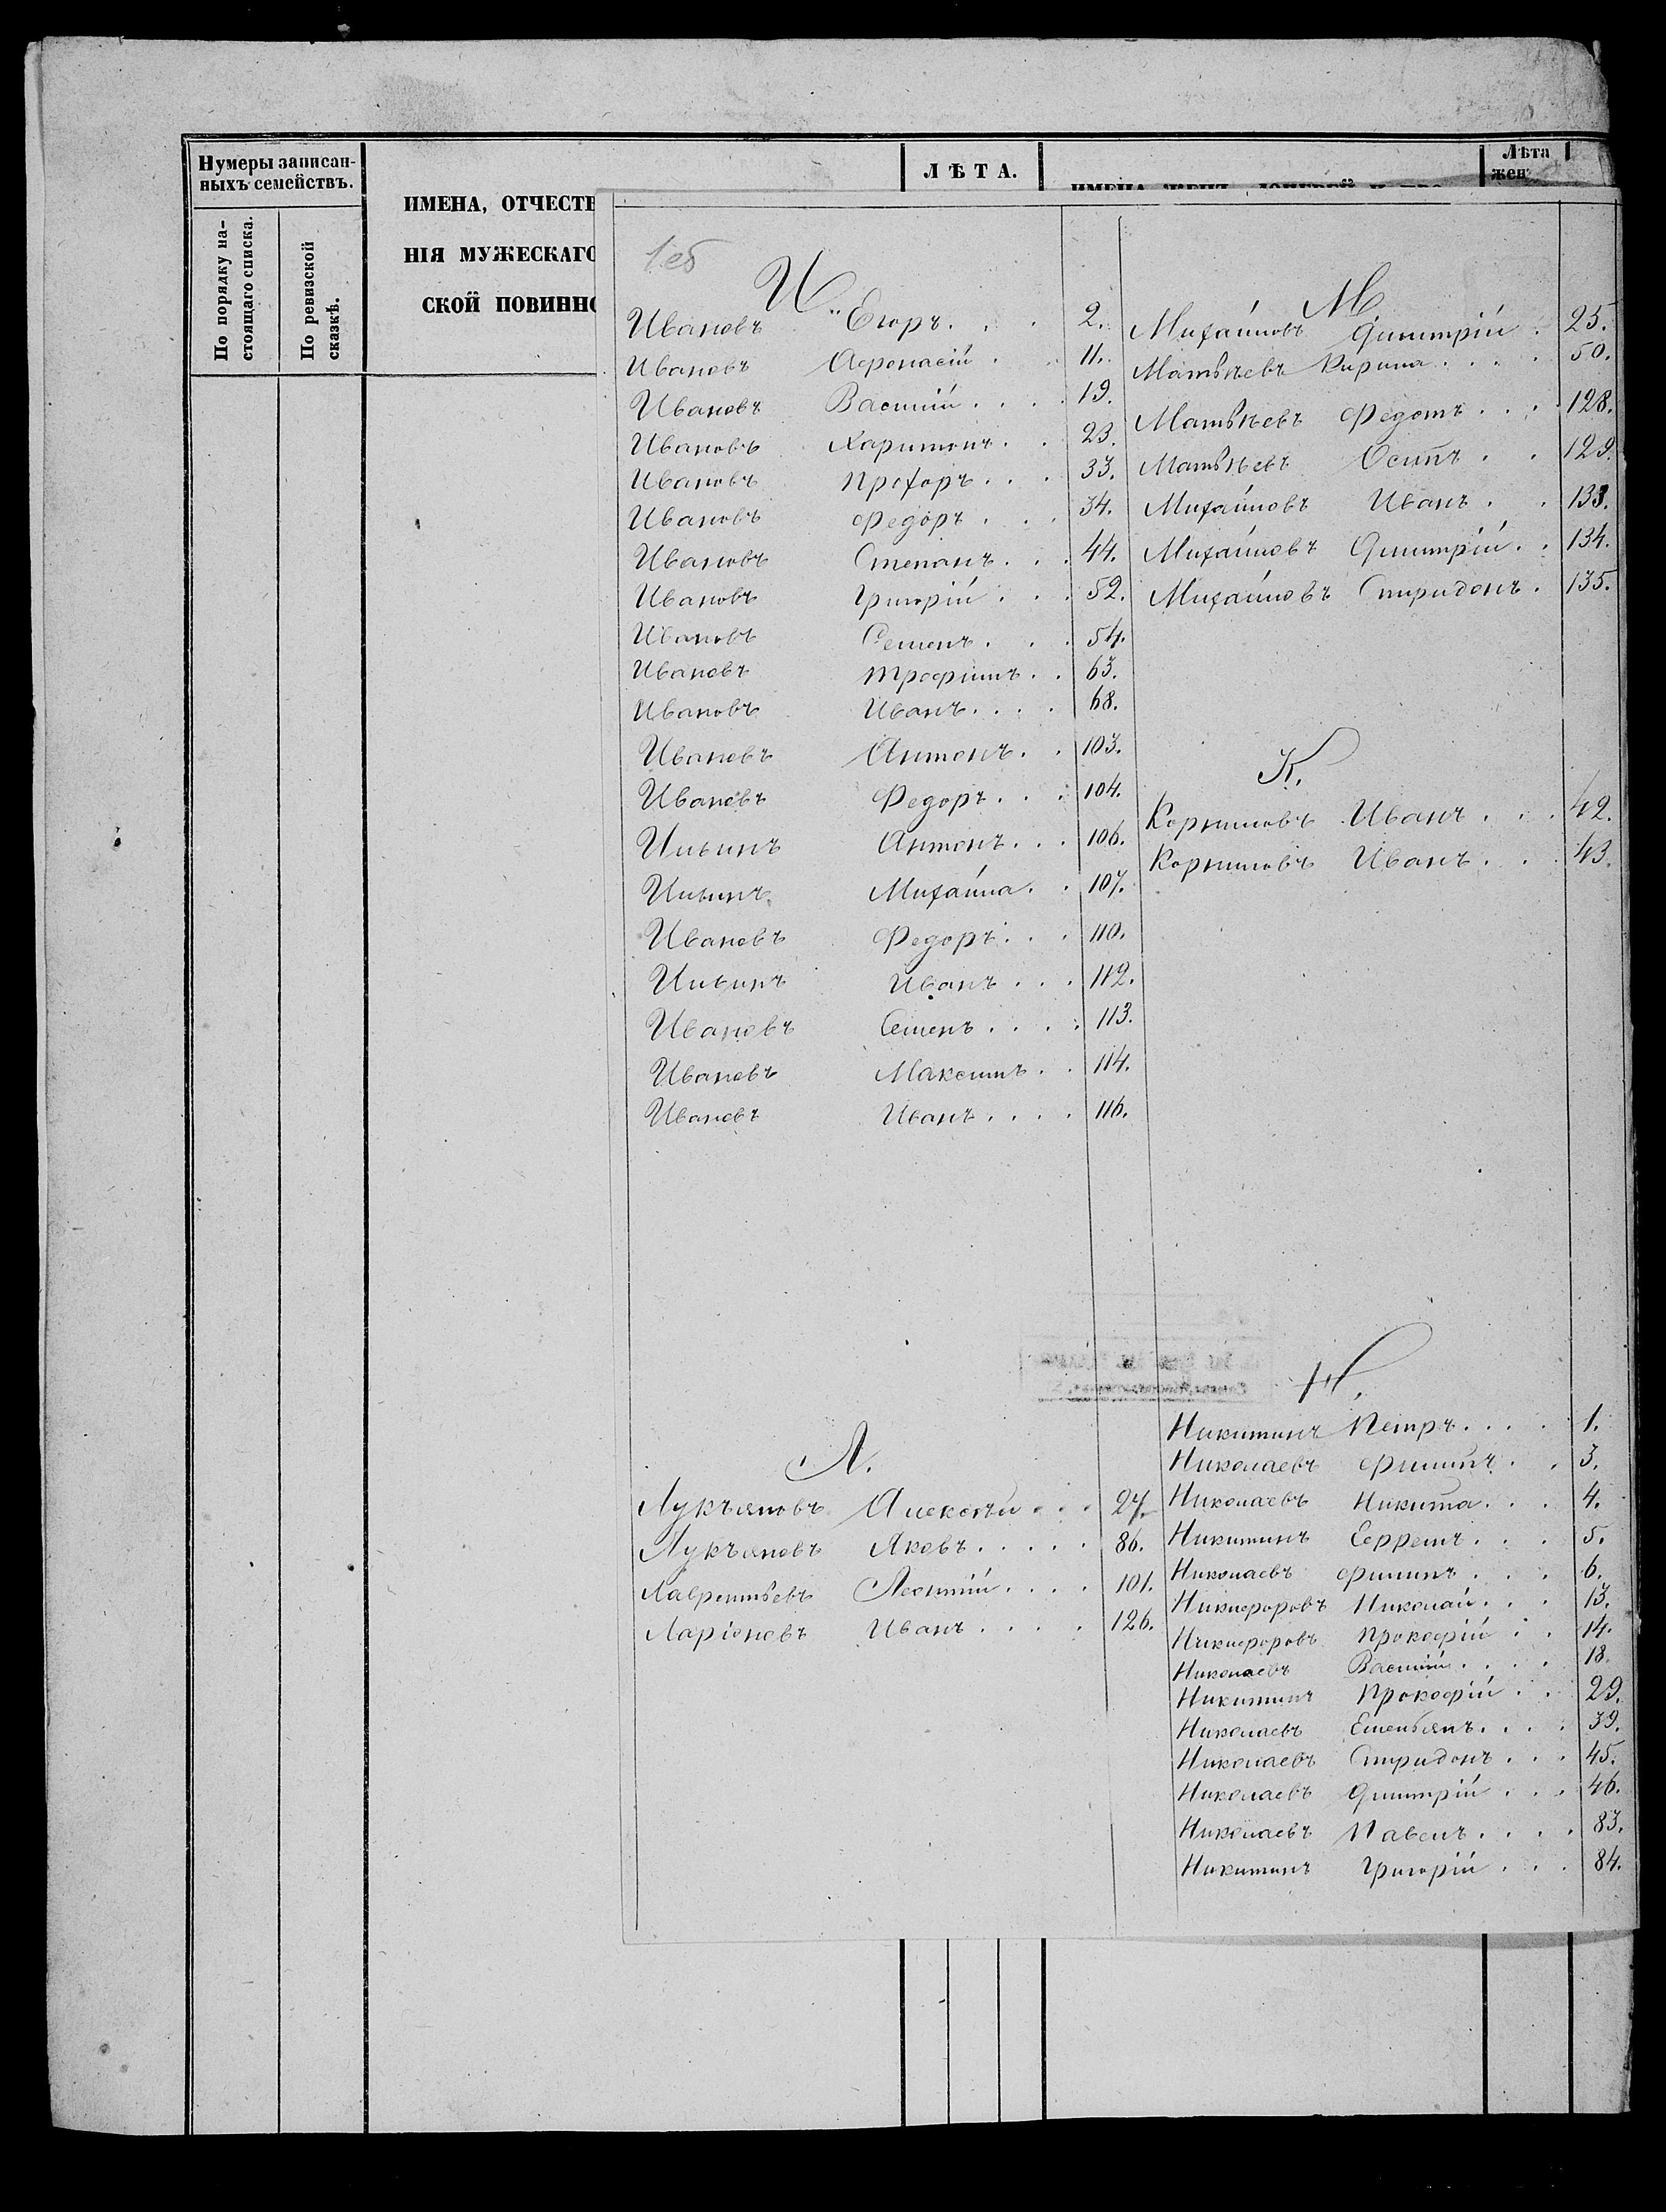 Нумеры записан-
ныхъ семействъ.
По порядку на-
стоящаго списка.
По ревизской
сказкѣ.
ИМЕНА, ОТЧЕСТВ
НІЯ МУЖЕСКАГО
СКОЙ ПОВИННО
ЛѢТА.
Лѣта
жен
И
Ивановъ Егоръ. . . 2.
Ивановъ Афонасій . . 11.
Ивановъ Василій . . . . 19.
Ивановъ Харитонъ. . 23.
Ивановъ Прохоръ . . . 33.
Ивановъ Федоръ . . . 34.
Ивановъ Степанъ. . . 44.
Ивановъ Григорій . . . 52.
Ивановъ Семенъ. . . 54.
Ивановъ Трофимъ. . 63.
Ивановъ Иванъ. . . . 68.
Ивановъ Антонъ. . 103.
Ивановъ Федоръ. . . 104.
Ильинъ Антонъ. . . 106.
Ильинъ Михайла. . 107.
Ивановъ Федоръ. . . 110.
Ильинъ Иванъ . . . 112.
Ивановъ Семенъ . . . . 113.
Ивановъ Максимъ. . 114.
Ивановъ Иванъ. . . . 116.
Л.
Лукъяновъ Алексѣй . . . 27.
Лукъяновъ Яковъ. . . . . 86.
Лаврентьевъ Леонтій. . . . 101.
Ларіоновъ Иванъ . . . . 126.
М
Михайловъ Димитрій . 25.
Матвѣевъ Кирила . . . . 50.
Матвѣевъ Федотъ . . . 128.
Матвѣевъ Осипъ . . 129.
Михайловъ Иванъ . . 133.
Михайловъ Димитрій. . 134.
Михайловъ Спиридонъ. 135.
К.
Корниловъ Иванъ . . . 42.
Корниловъ Иванъ. . . 43.
Н.
Никитинъ Петръ. . . . 1.
Николаевъ Филипъ. . . 3.
Николаевъ Никита. . . 4.
Никитинъ Ефремъ. . . 5.
Николаевъ Филипъ . . . 6.
Никифоровъ Николай. . . 13.
Никифоровъ Прокофій . . 14.
Николаевъ Василій. . . . 18.
Никитинъ Прокофій . . 29.
Николаевъ Емельянъ. . . . 39.
Николаевъ Спиридонъ . . . 45.
Николаевъ Димитрій . . . 46.
Николаевъ Павелъ. . . . 83.
Никитинъ Григорій . . . 84.